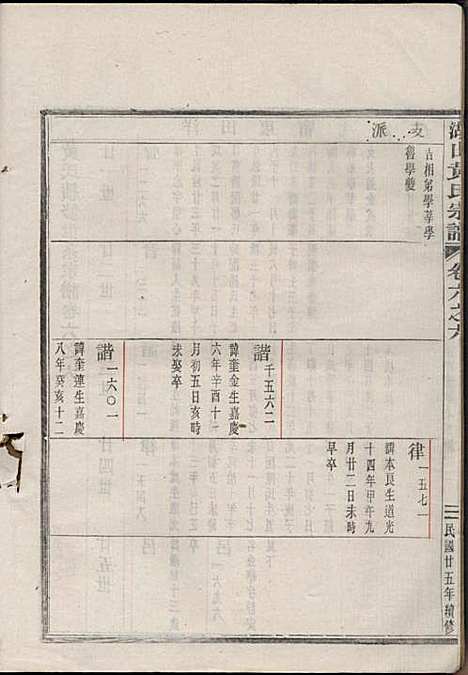 湖山黃氏宗譜
卷六之六
三
民國廿五年續修
支派
古相弟學華學
舊學燮
律一五七一
諱本良生道光
十四年甲午九
月廿二日未時
早卒
諧千五六二
諱奎金生嘉慶
六年辛酉十二
月初五日亥時
未娶卒
諧一六〇一
諱奎蓮生嘉慶
八年癸亥十二